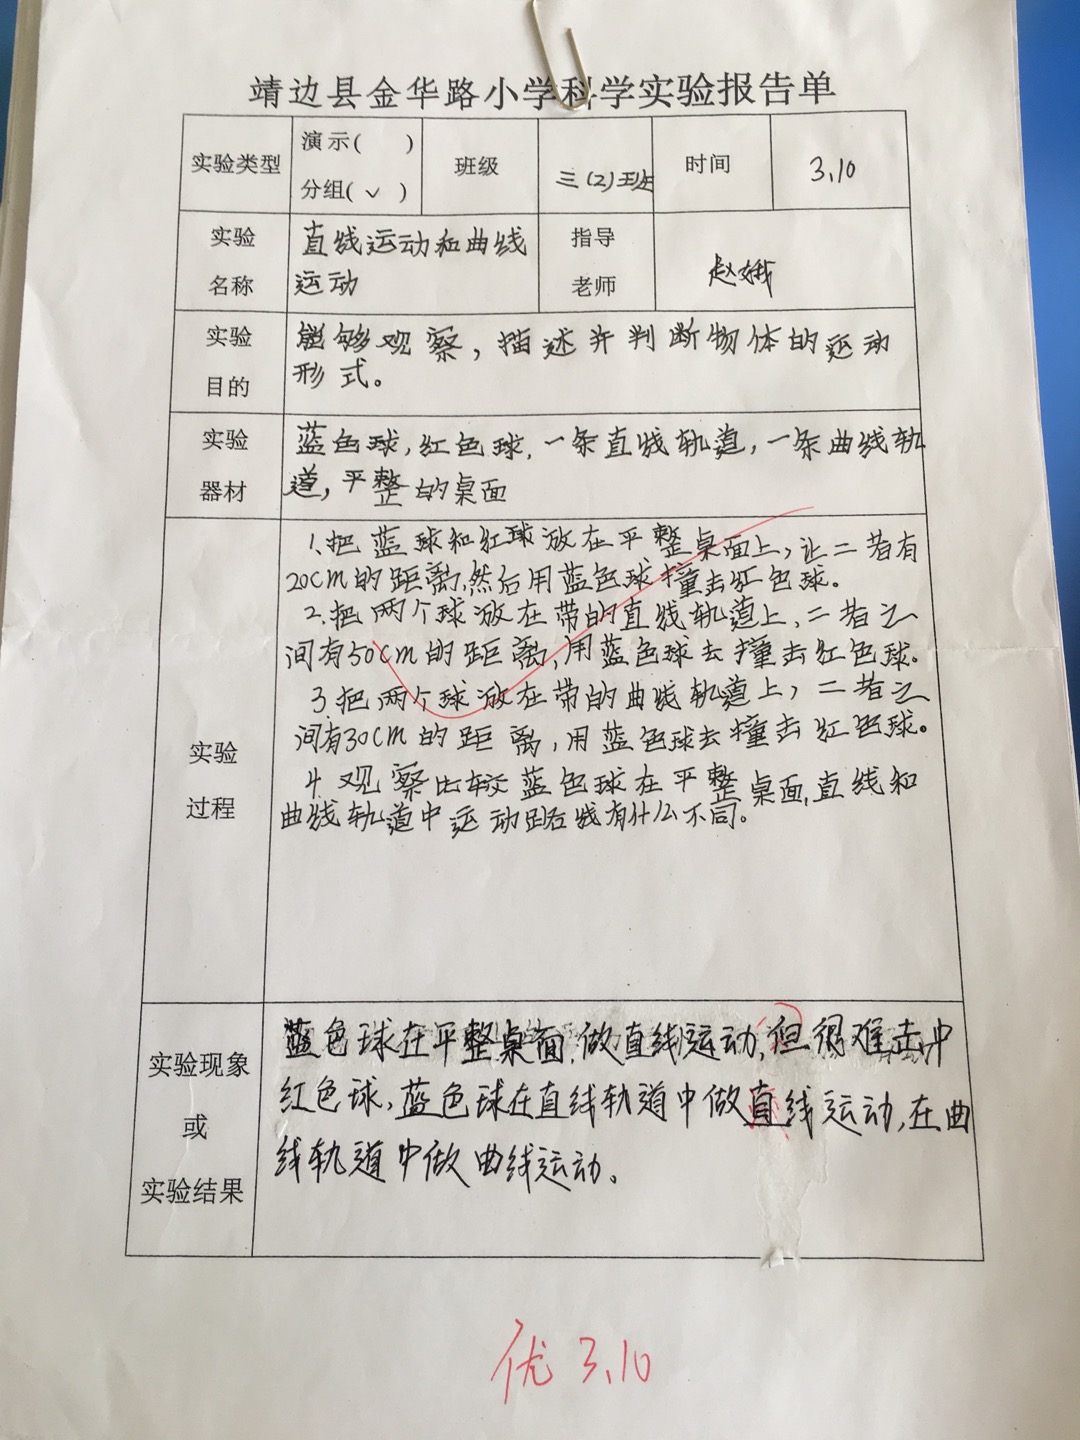 靖边县金华路小学科学实验报告单
实验类型
演示( )
分组(✓)
班级
三(2)班
时间
3.10
实验
名称
直线运动和曲线
运动
指导
老师
赵娥
实验
目的
能够观察，描述并判断物体的运动
形式。
实验
器材
蓝色球，红色球，一条直线轨道，一条曲线轨
道，平整的桌面
实验
过程
1、把蓝球和红球放在平整桌面上，让二者有
20cm的距离，然后用蓝色球撞击红色球。
2、把两个球放在带的直线轨道上，二者之
间有50cm的距离，用蓝色球去撞击红色球。
3、把两个球放在带的曲线轨道上，二者之
间有30cm的距离，用蓝色球去撞击红色球。
4、观察比较蓝色球在平整桌面，直线和
曲线轨道中运动路线有什么不同。
实验现象
或
实验结果
蓝色球在平整桌面，做直线运动，但很难击中
红色球，蓝色球在直线轨道中做直线运动，在曲
线轨道中做曲线运动。
优 3.10